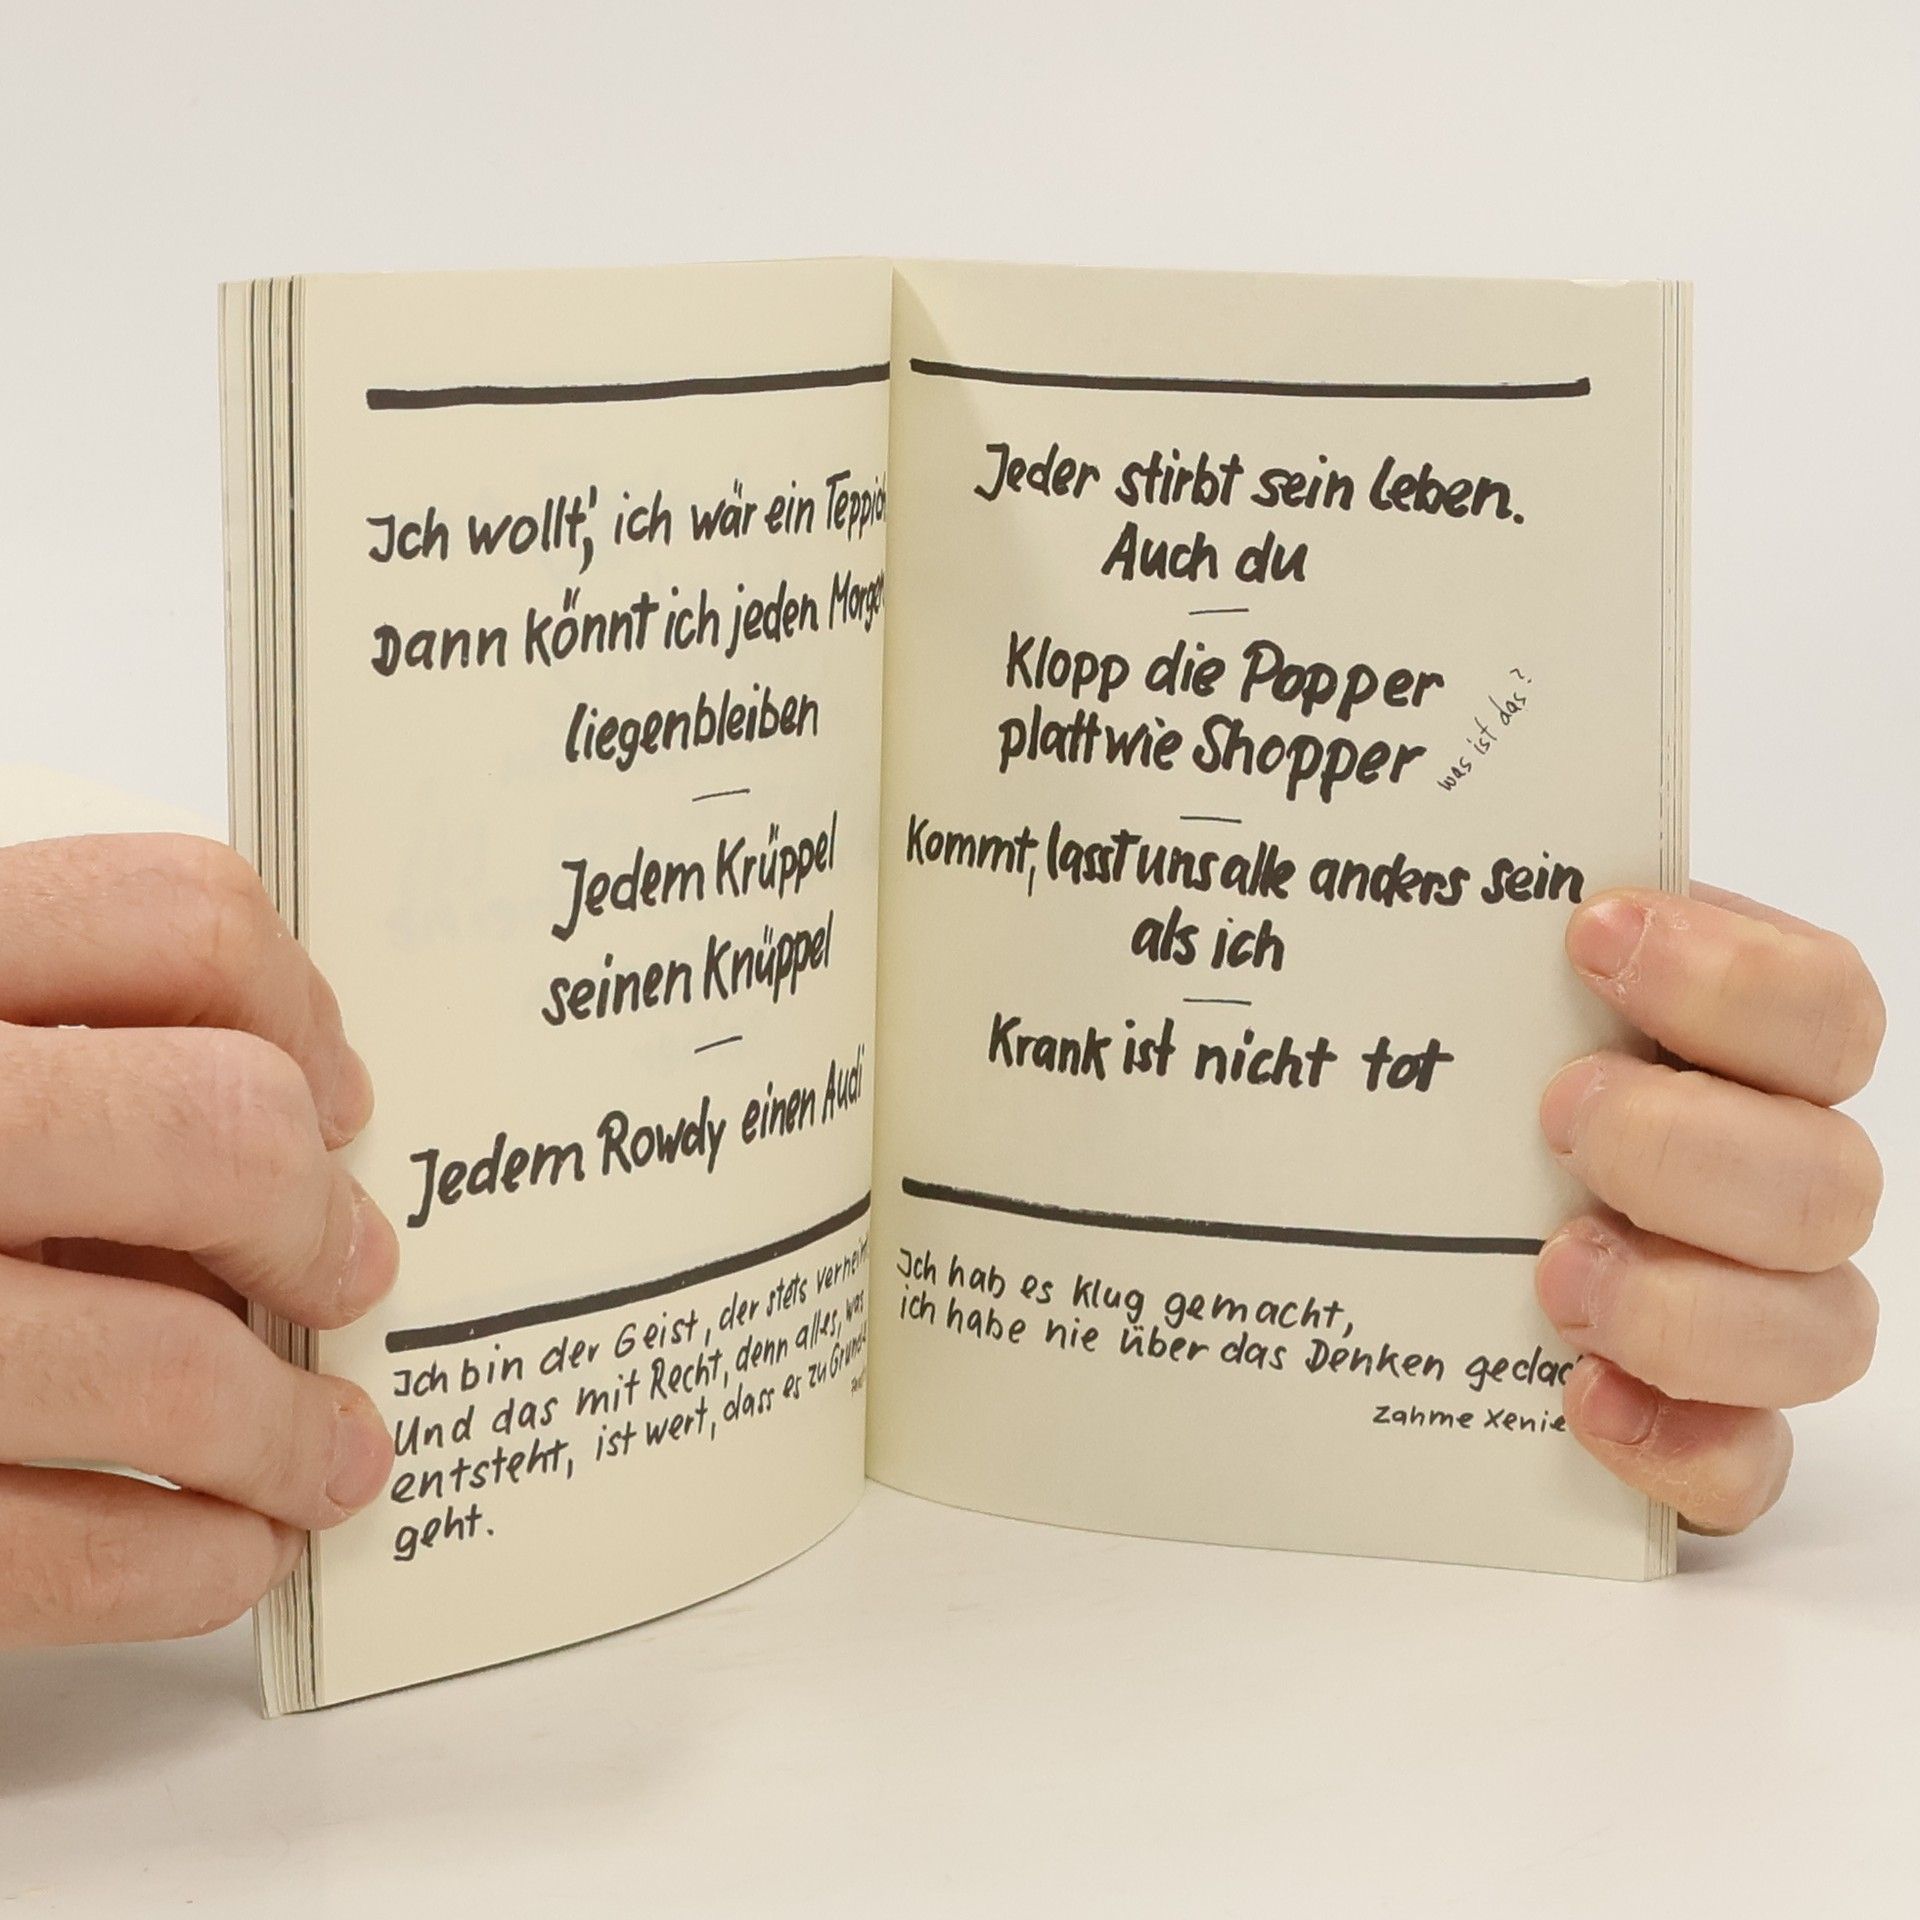 Ich wollt', ich wär ein Teppich
Dann könnt ich jeden Morgen
liegenbleiben
—
Jedem Krüppel
seinen Knüppel
—
Jedem Rowdy einen Audi
Ich bin der Geist, der stets verneint
Und das mit Recht, denn alles, was
entsteht, ist wert, dass es zu Grunde
geht.
Jeder stirbt sein Leben.
Auch du
—
Klopp die Popper
platt wie Shopper
was ist das?
—
Kommt, lasst uns alle anders sein
als ich
—
Krank ist nicht tot
Ich hab es klug gemacht,
ich habe nie über das Denken gedac
Zahme Xenie